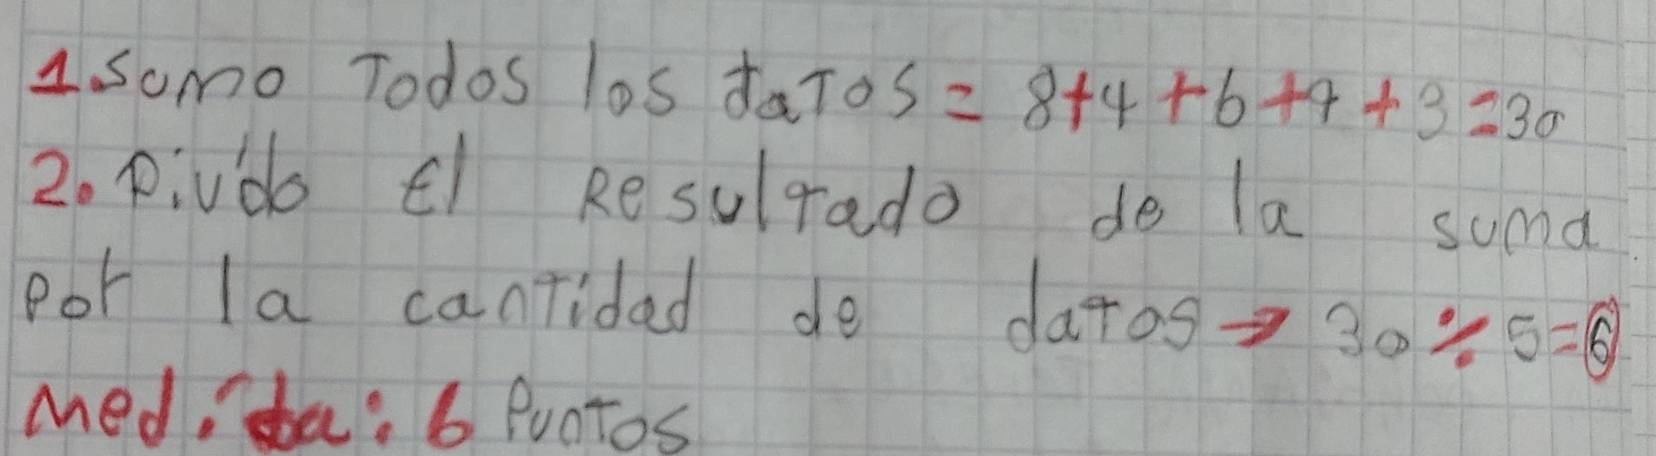 1.Sumo Todos los daTos = 8+4+6+9+3=30
2. Divido El Resultado de la suma
por la cantidad de datos → 30 ÷ 5=6
Media: 6 PunTos